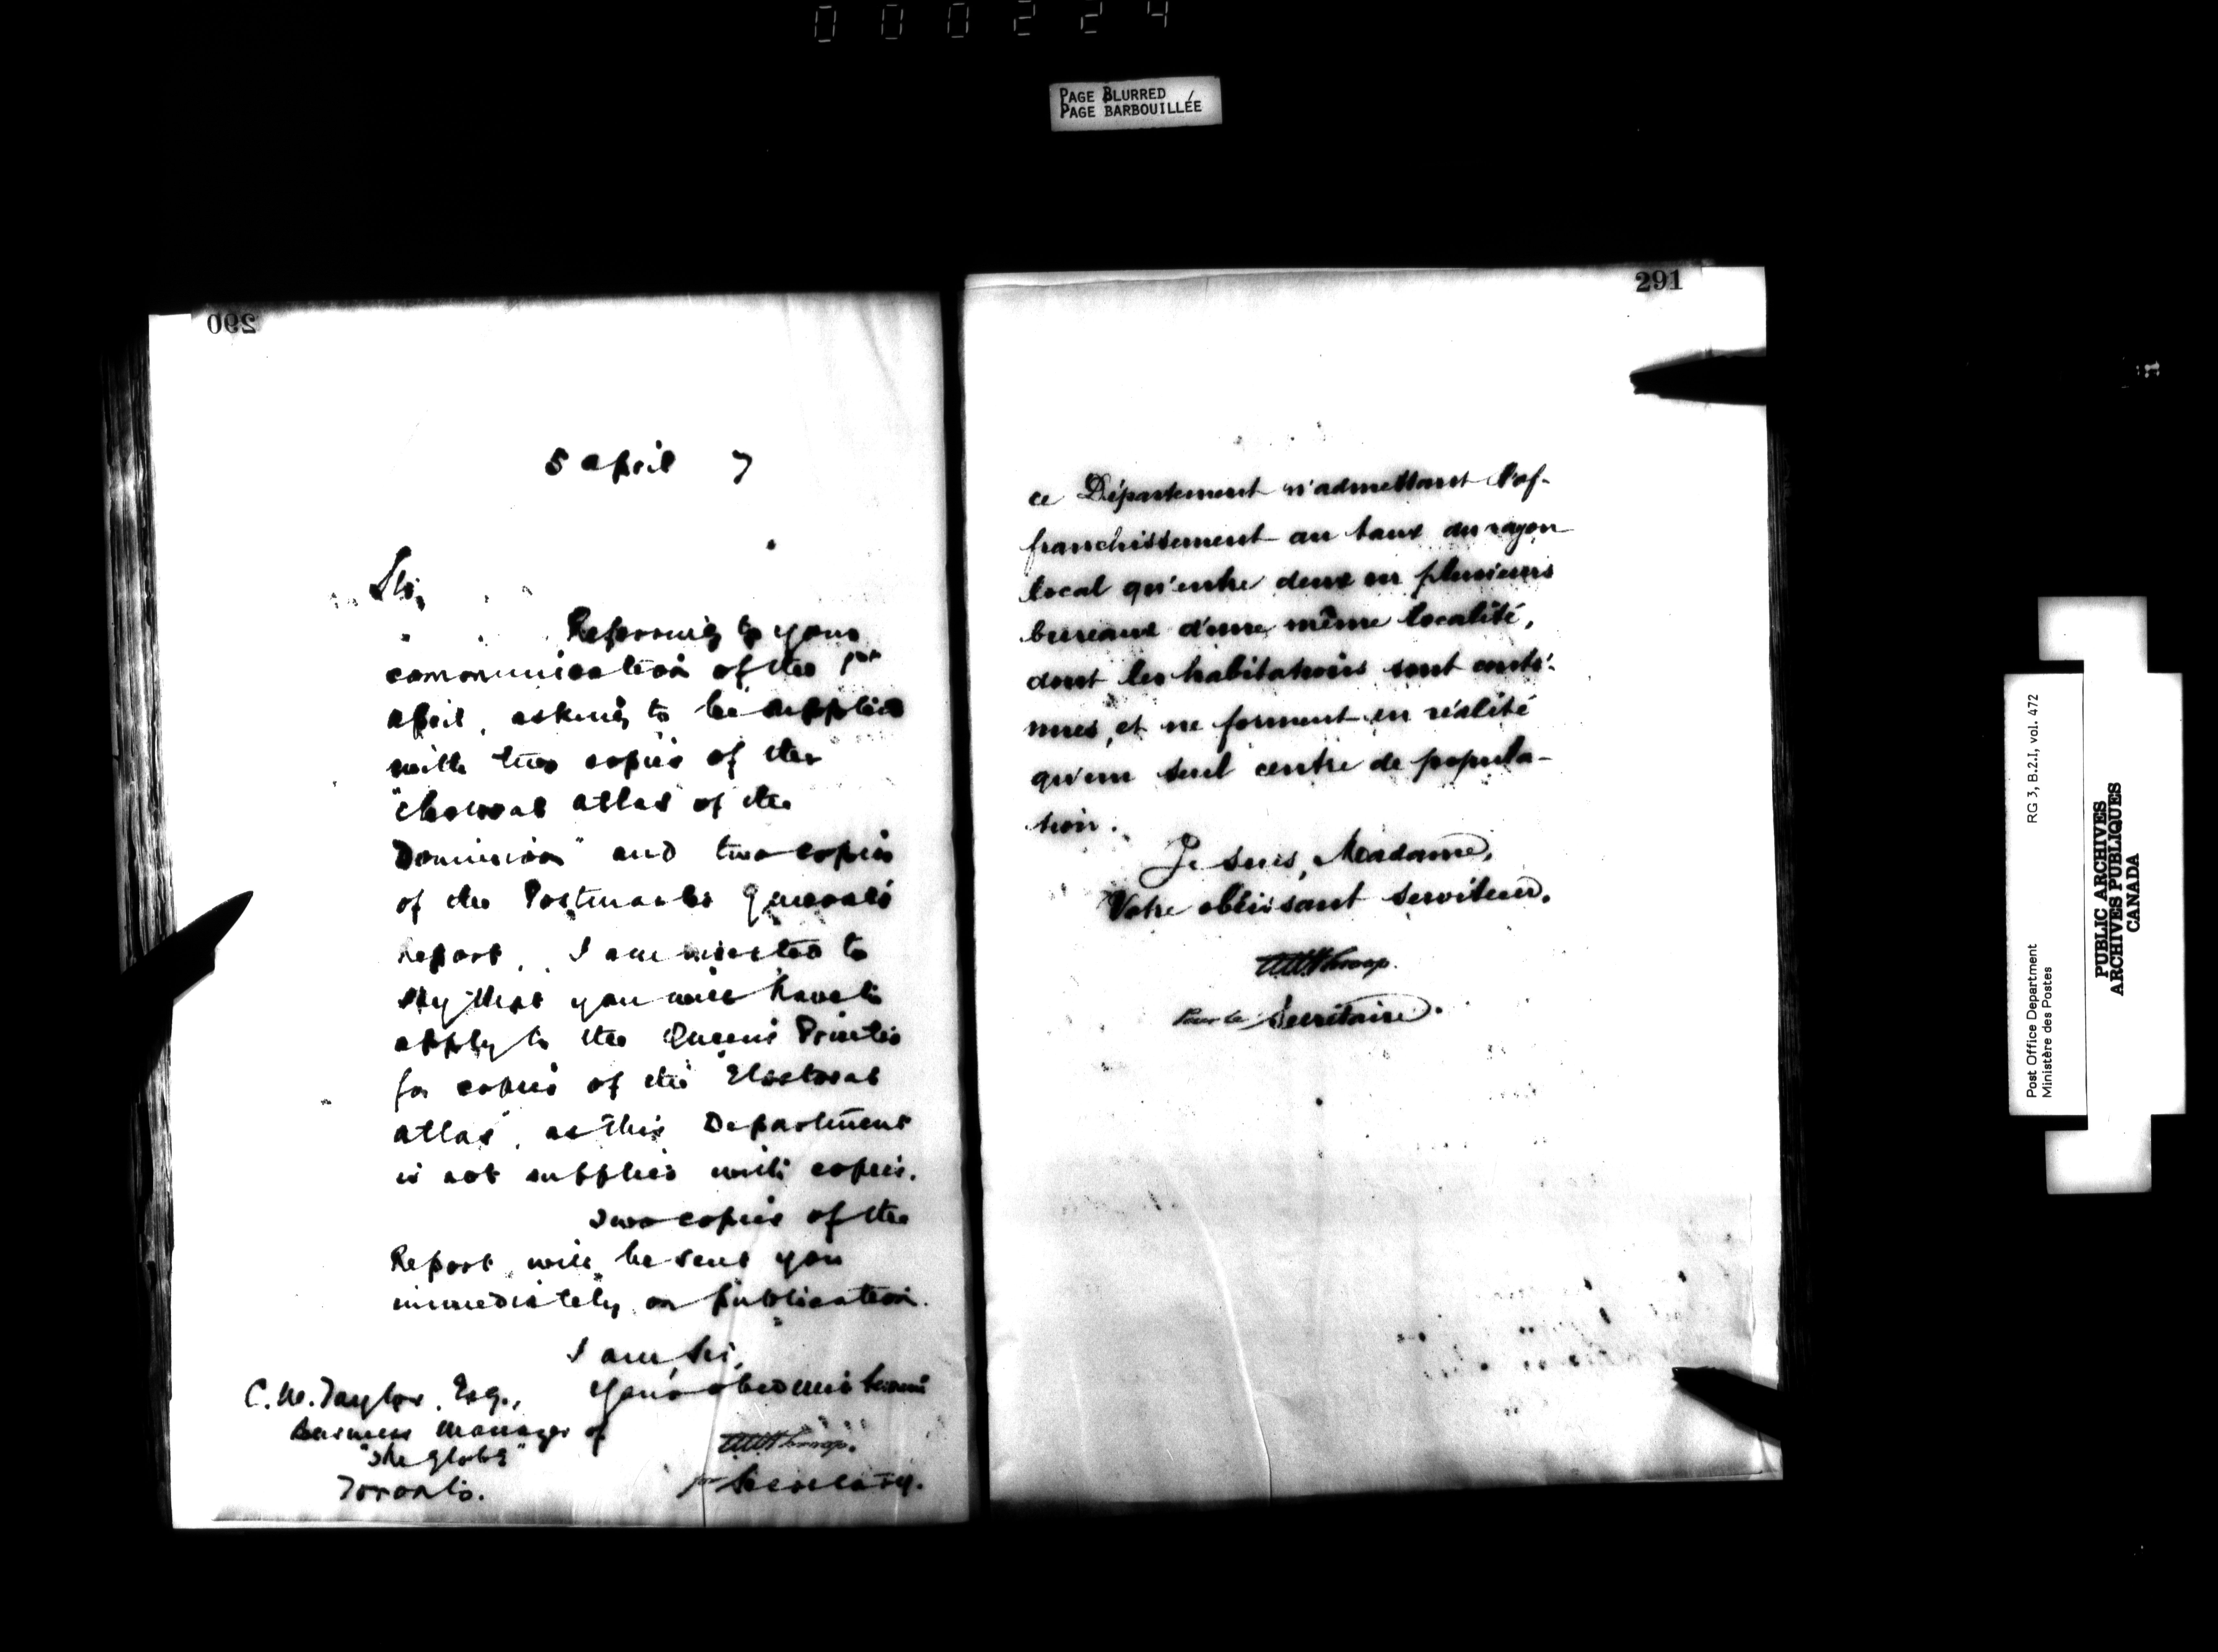 000224
PAGE BLURRED
PAGE BARBOUILLÉE
290
5 April 7
Sir,
Referring to your
communication of the 1st
April, asking to be supplied
with two copies of the
"Electoral atlas of the
Dominion" and two copies
of the Postmaster General's
report, I am directed to
say that you will have to
apply to the Queen's Printer
for copies of the "Electoral
atlas", as this Department
is not supplied with copies.
Two copies of the
Report will be sent you
immediately on publication.
I am, Sir,
Your obedient servant
C. W. Taylor, Esq.,
Business Manager of
"The Globe"
Toronto.
for Secretary.
291
ce Département n'admettant l'af-
franchissement au taux du rayon
local qu'entre deux ou plusieurs
bureaux d'une même localité,
dont les habitations sont conti-
nues, et ne forment en réalité
qu'un seul centre de popula-
tion.
Je suis, Madame,
Votre obéissant serviteur,
Pour le Secrétaire.
Post Office Department
Ministère des Postes
RG 3, B.2.I, vol. 472
PUBLIC ARCHIVES
ARCHIVES PUBLIQUES
CANADA